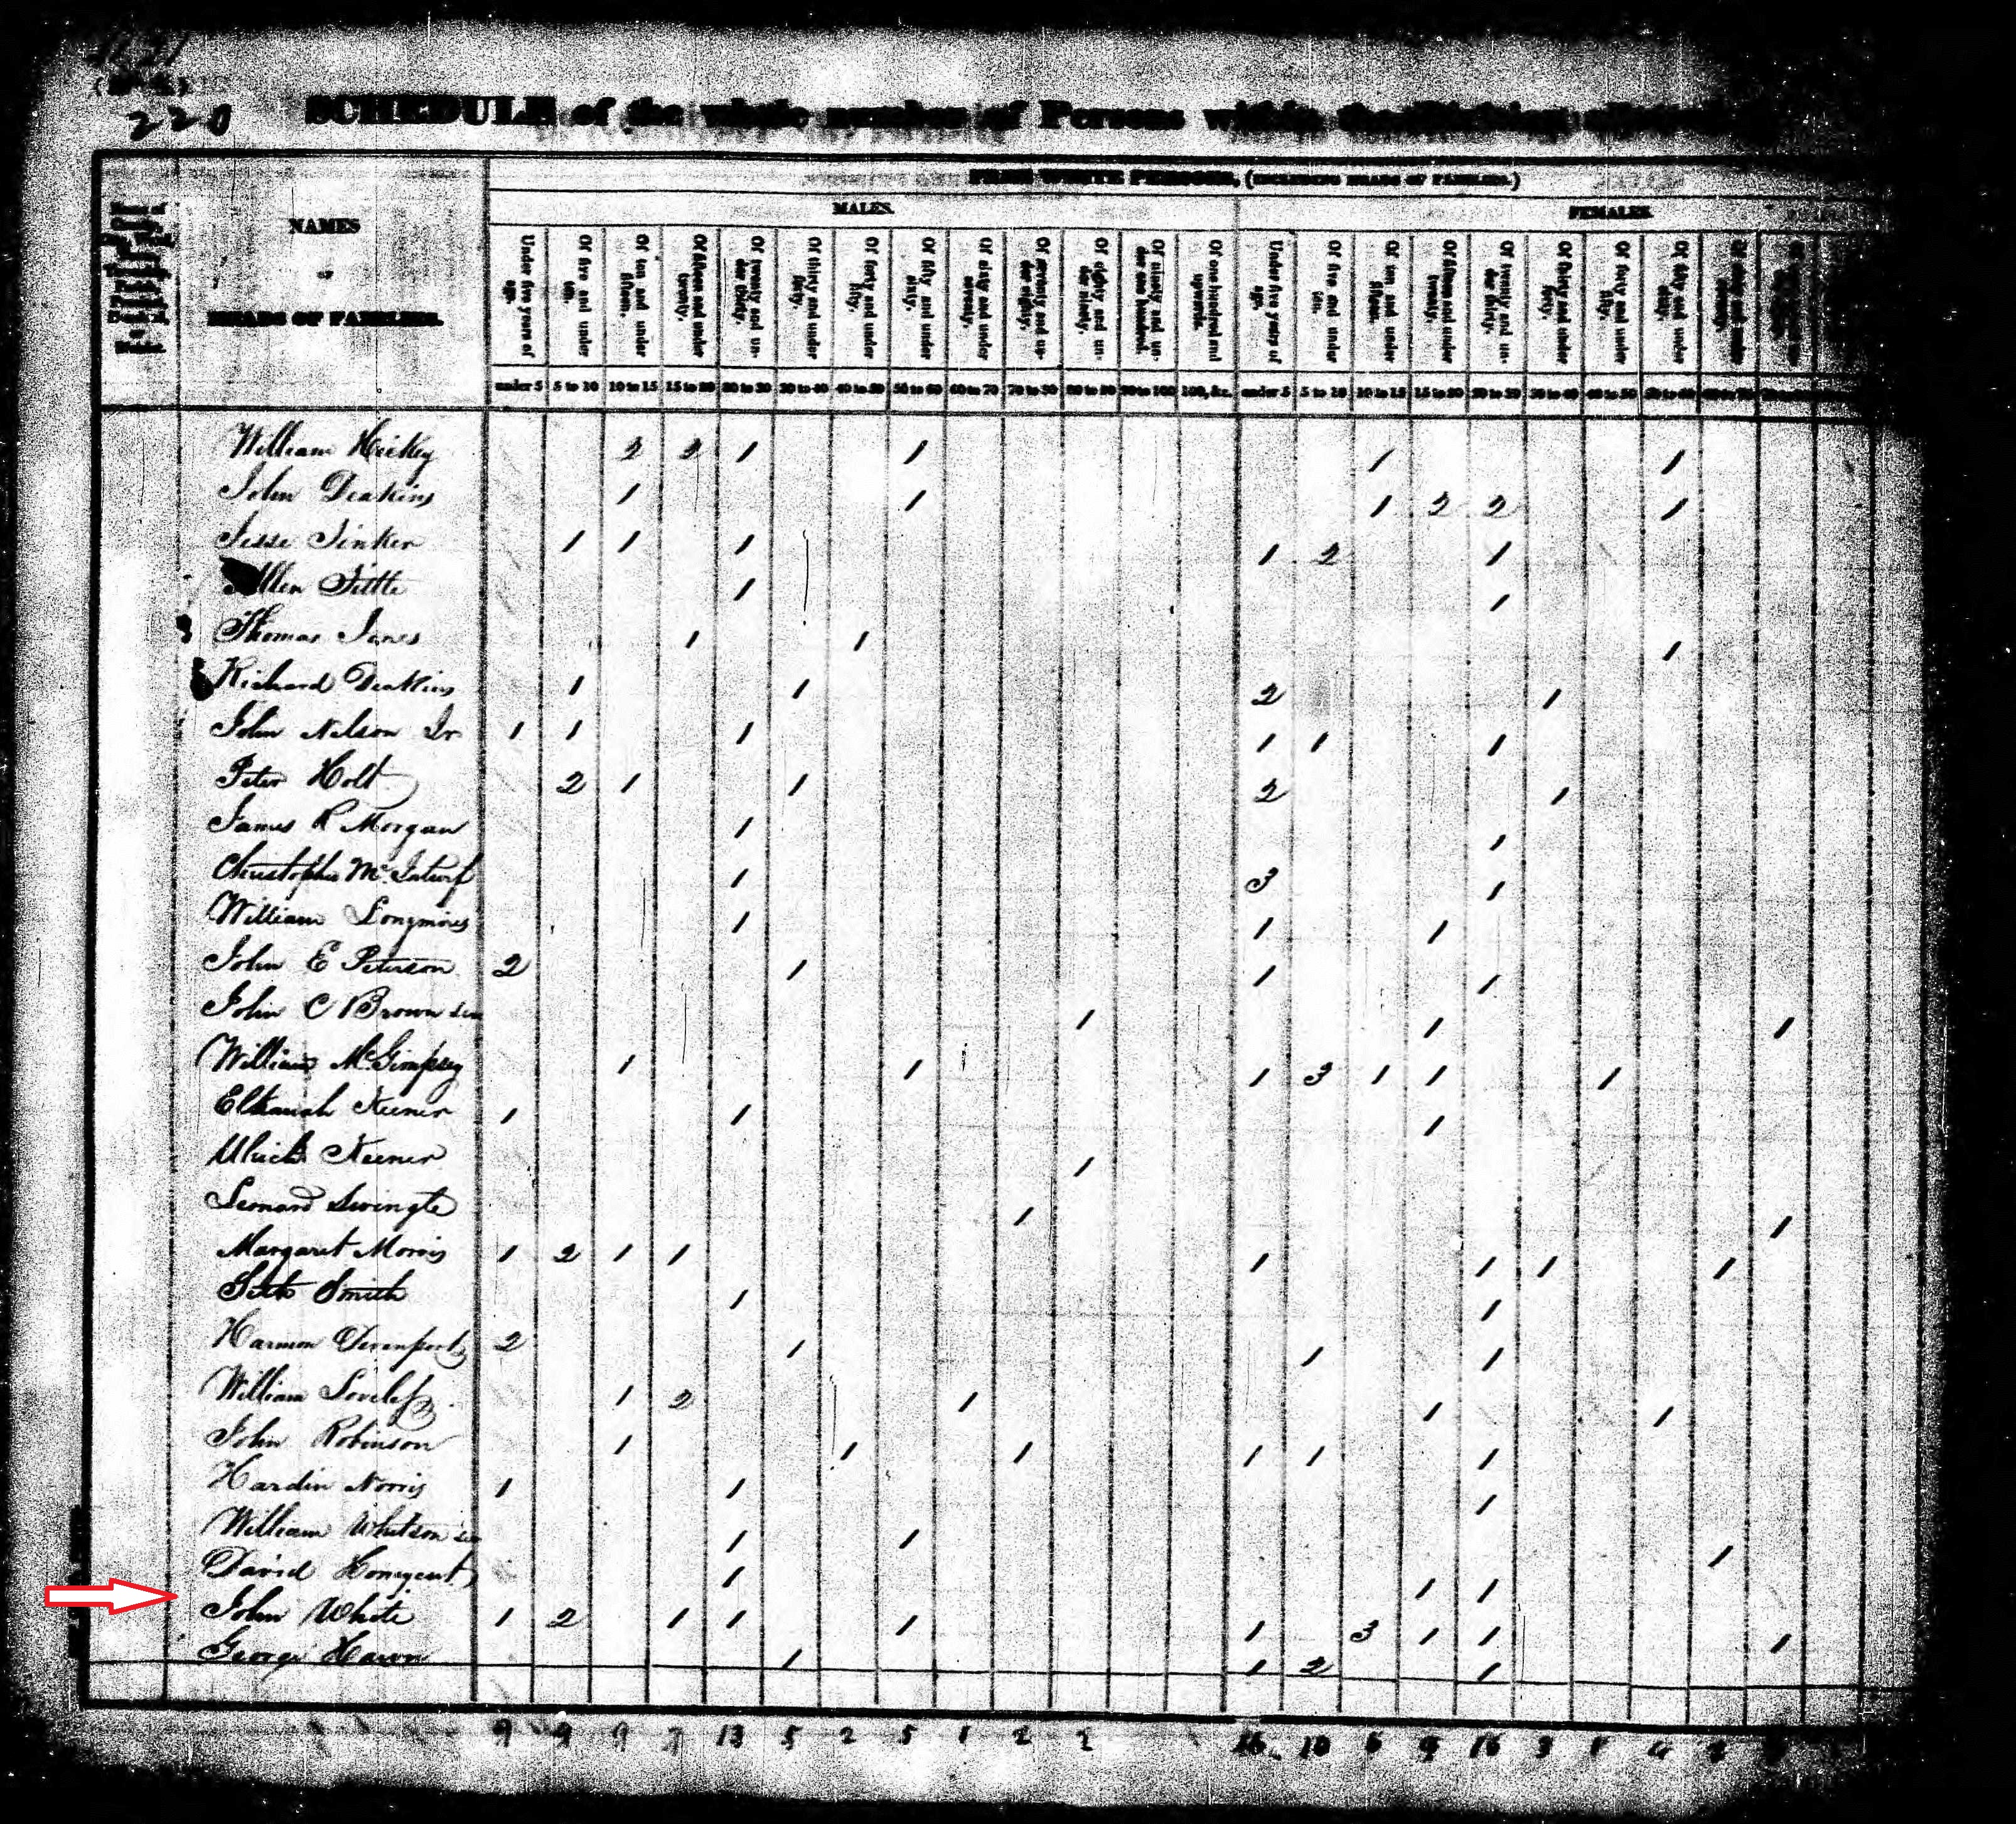 220
SCHEDULE of the whole number of Persons within the Division
FREE WHITE PERSONS, (INCLUDING HEADS OF FAMILIES.)
MALES. FEMALES.
NAMES
OF
HEADS OF FAMILIES.
Under five years of age. Of five and under ten. Of ten and under fifteen. Of fifteen and under twenty. Of twenty and under thirty. Of thirty and under forty. Of forty and under fifty. Of fifty and under sixty. Of sixty and under seventy. Of seventy and under eighty. Of eighty and under ninety. Of ninety and under one hundred. Of one hundred and upwards. Under five years of age. Of five and under ten. Of ten and under fifteen. Of fifteen and under twenty. Of twenty and under thirty. Of thirty and under forty. Of forty and under fifty. Of fifty and under sixty.
under 5 5 to 10 10 to 15 15 to 20 20 to 30 30 to 40 40 to 50 50 to 60 60 to 70 70 to 80 80 to 90 90 to 100 100, &c. under 5 5 to 10 10 to 15 15 to 20 20 to 30 30 to 40 40 to 50 50 to 60
William Hickey 2 2 1 1 1 1
John Deakins 1 1 1 2 2 1
Jesse Tinker 1 1 1 1 2 1
Allen Tittle 1 1
Thomas Jones 1 1 1
Richard Deakins 1 1 2 1
John Nelson Jr 1 1 1 1 1 1
Peter Holt 2 1 1 2 1
James R Morgan 1 1
Christopher McInturf 1 3 1
William Longmires 1 1 1
John E Peterson 2 1 1 1
John C Brown Sen 1 1 1
William McGimpsey 1 1 1 3 1 1 1
Elkanah Keener 1 1 1
Ulrick Keener 1
Leonard Swingle 1 1
Margaret Morris 1 2 1 1 1 1 1 1
Seth Smith 1 1
Harmon Devenport 2 1 1 1
William Loveless 1 2 1 1 1
John Robinson 1 1 1 1 1 1
Hardin Norris 1 1 1
William Whitson Sen 1 1 1
David Honeycut 1 1 1
John White 1 2 1 1 1 1 3 1 1 1
George Hawn 1 1 2 1
9 9 9 7 13 5 2 5 1 2 2 16 10 6 9 16 3 1 4 2